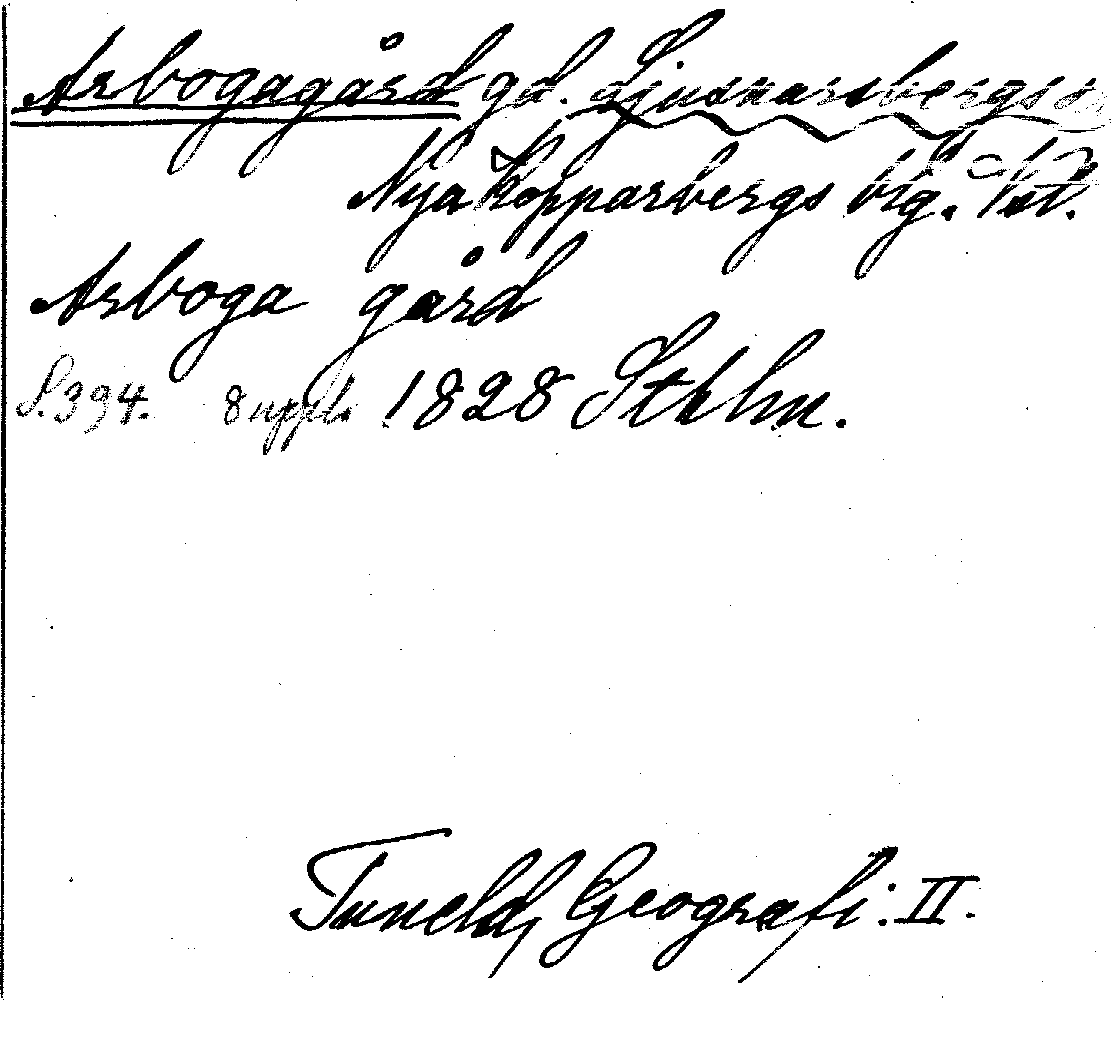 Arbogagård gd. Ljusnarsbergs s
Nya Kopparbergs blg. Vstl.
Arboga gård
S. 394. 8 uppl. 1828 Sthlm.
Tuneld, Geografi. II.